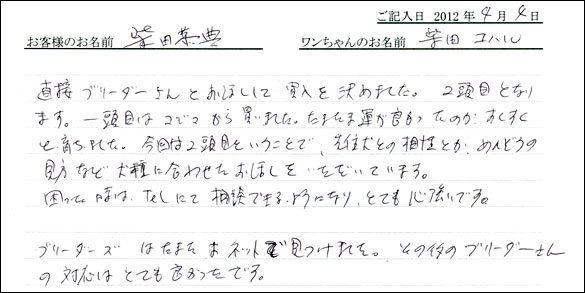 ご記入日 2012年 4月 4日
お客様のお名前 柴田恭典 ワンちゃんのお名前 柴田 コハル
直接ブリーダーさんとお話しして 買入を決めました。2頭目となり
ます。一頭目はコジマから買いました。たまたま運が良かったのか、すくすく
と育ちました。今回は2頭目ということで、先住犬との相性とか、めんどうの
見方など犬種に合わせたお話しをいただいています。
困った時は、TELにて相談できるようになり、とても心強いです。
ブリーダーズ はたまたまネットで見つけました。その後のブリーダーさん
の対応はとても良かったです。